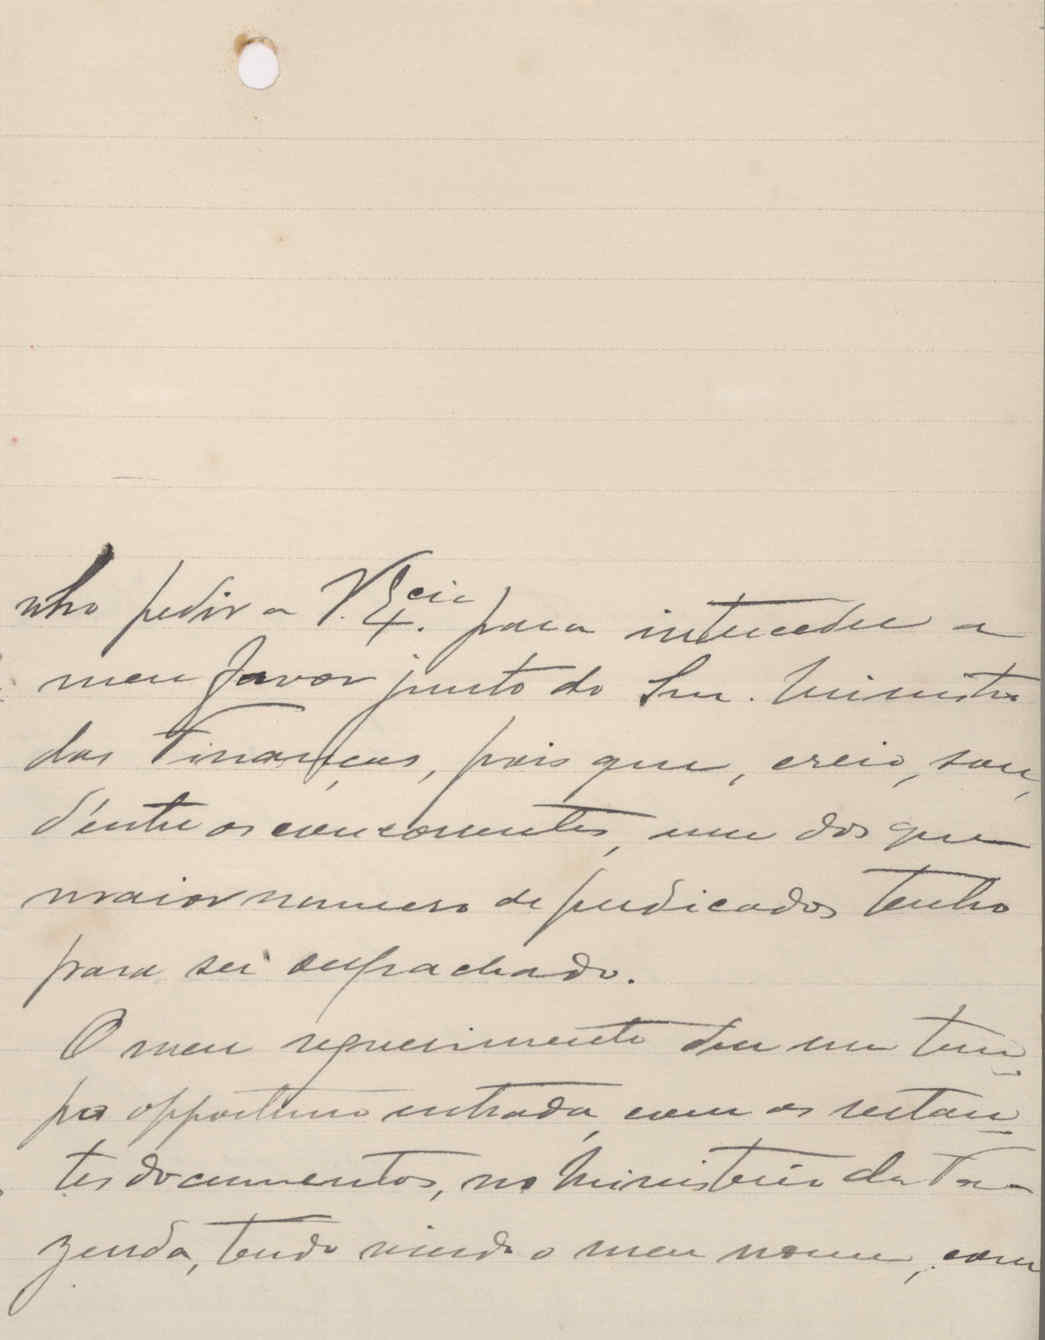 nho pedir a V. Ex.cia para interceder a
meu favor junto do Snr. Ministro
das Finanças, pois que, creio, sou,
d'entre os concorrentes, um dos que
maior numero de predicados tenho
para ser despachado.
O meu requerimento deu em tem-
po opportuno entrada, com os restan-
tes documentos, no Ministerio da Fa-
zenda, tendo vindo o meu nome, com